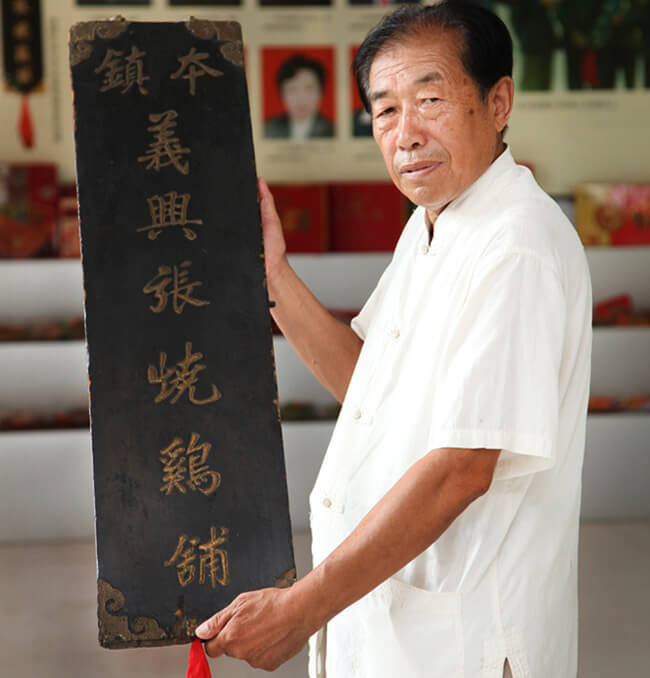 本鎮
義興張燒鷄舖